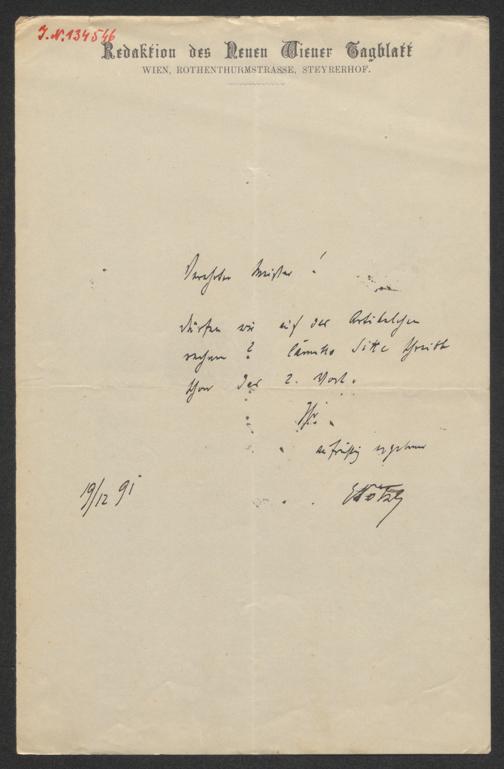 J.N.134546
Redaktion des Neuen Wiener Tagblatt
WIEN, ROTHENTHURMSTRASSE, STEYRERHOF.
Verehrter Meister!
Dürfen wir auf das Artikelchen
rechnen? Sitte schreibt
schon das 2. Mal.
Ihr
aufrichtig ergebener
19/12 91